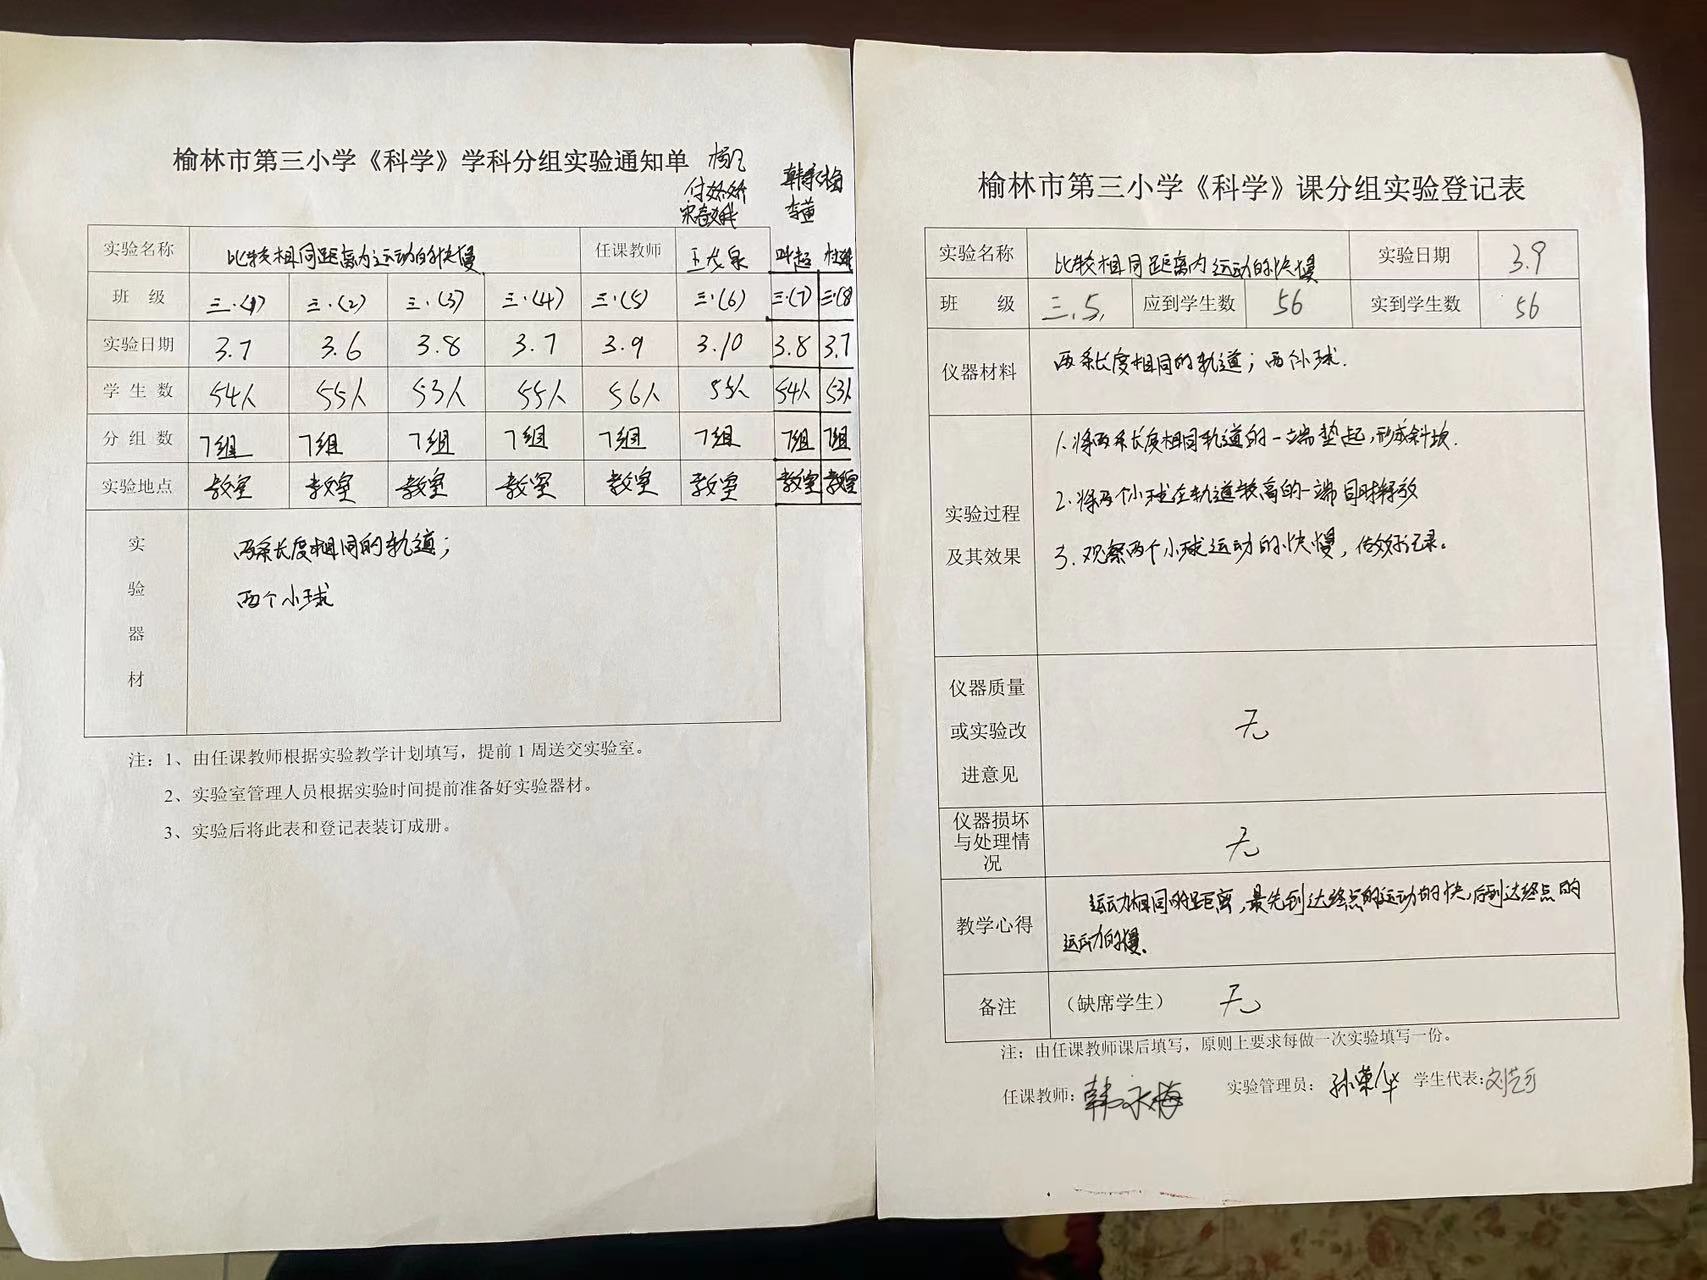 榆林市第三小学《科学》学科分组实验通知单
韩永梅
付娇娇
李黄
实验名称 比较相同距离内运动的快慢 任课教师
班 级 三.(1) 三.(2) 三.(3) 三.(4) 三.(5) 三.(6) 三.(7) 三.(8)
实验日期 3.7 3.6 3.8 3.7 3.9 3.10 3.8 3.7
学 生 数 54人 55人 53人 55人 56人 55人 54人 53人
分 组 数 7组 7组 7组 7组 7组 7组 7组 7组
实验地点 教室 教室 教室 教室 教室 教室 教室 教室
实验器材
两条长度相同的轨道；
两个小球
注：1、由任课教师根据实验教学计划填写，提前1周送交实验室。
2、实验室管理人员根据实验时间提前准备好实验器材。
3、实验后将此表和登记表装订成册。
榆林市第三小学《科学》课分组实验登记表
实验名称 比较相同距离内运动的快慢 实验日期 3.9
班 级 三.5. 应到学生数 56 实到学生数 56
仪器材料 两条长度相同的轨道；两个小球.
实验过程及其效果
1.将两条长度相同轨道的一端垫起,形成斜坡.
2.将两个小球在轨道较高的一端同时释放
3.观察两个小球运动的快慢，做好记录。
仪器质量或实验改进意见 无
仪器损坏与处理情况 无
教学心得 运动相同的距离,最先到达终点的运动的快,后到达终点的
运动的慢.
备注 （缺席学生） 无
注：由任课教师课后填写，原则上要求每做一次实验填写一份。
任课教师：韩永梅 实验管理员：孙荣华 学生代表: